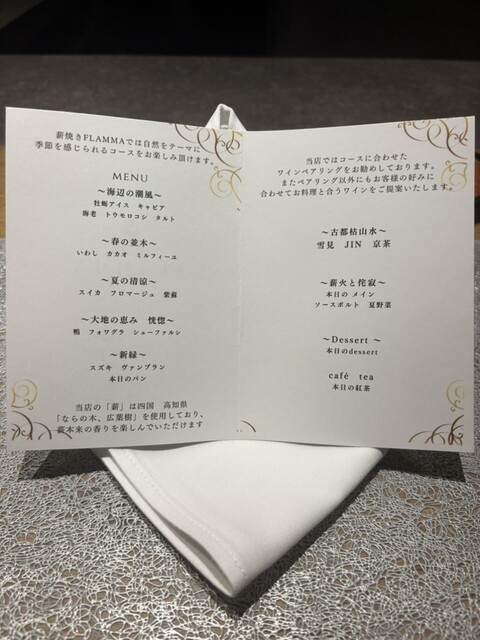 薪焼きFLAMMAでは自然をテーマに
季節を感じられるコースをお楽しみ頂けます。
MENU
〜海辺の潮風〜
牡蠣アイス キャビア
海老 トウモロコシ タルト
〜春の並木〜
いわし カカオ ミルフィーユ
〜夏の清涼〜
スイカ フロマージュ 紫蘇
〜大地の恵み 恍惚〜
鴨 フォワグラ シューファルシ
〜新緑〜
スズキ ヴァンブラン
本日のパン
当店の「薪」は四国 高知県
「ならの木、広葉樹」を使用しており、
薪本来の香りを楽しんでいただけます
当店ではコースに合わせた
ワインペアリングをお勧めしております。
またペアリング以外にもお客様の好みに
合わせてお料理と合うワインをご提案いたします。
〜古都枯山水〜
雪見 JIN 京茶
〜薪火と侘寂〜
本日の メイン
ソースポルト 夏野菜
〜Dessert 〜
本日のdessert
café tea
本日の紅茶